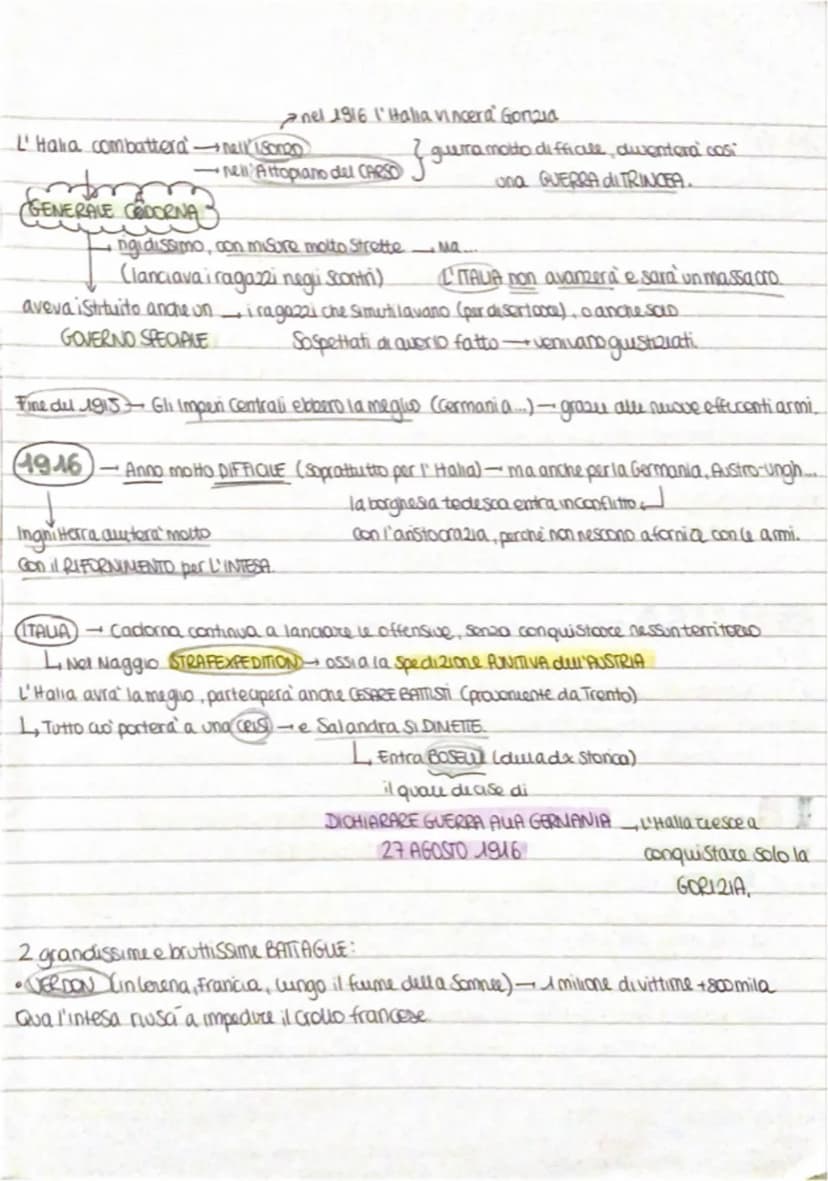 ↗ nel 1916 l'Italia vincerà Gorizia
L'Italia combatterà → nell'isonzo } guerra molto difficile, diventerà così
→ nell'Altopiano del CARSO una GUERRA di TRINCEA.
GENERALE CADORNA
rigidissimo, con misure molto strette → Ma...
(lanciava i ragazzi negli scontri) L'ITALIA non avanzerà e sarà un massacro
aveva istituito anche un → i ragazzi che si mutilavano (per disertare), o anche solo
GOVERNO SPECIALE Sospettati di averlo fatto → venivano giustiziati.
Fine del 1915 → Gli Imperi Centrali ebbero la meglio (Germania...) → grazie alle nuove efficenti armi.
1916 → Anno molto DIFFICILE (soprattutto per l'Italia) → ma anche per la Germania, Austro-Ungh...
la borghesia tedesca entra in conflitto
Inghilterra aiuterà molto con l'aristocrazia, perchè non riescono a fornia con le armi.
con il RIFORNIMENTO per L'INTESA.
ITALIA → Cadorna continua a lanciare le offensive, senza conquistare nessun territorio
↳ Nel Maggio STRAFEXPEDITION → ossia la spedizione PUNITIVA dell'AUSTRIA
L'Italia avrà la meglio, parteciperà anche CESARE BATTISTI (proveniente da Trento)
↳ Tutto ciò porterà a una CRISI → e Salandra SI DIMETTE.
↳ Entra BOSELLI (della dx Storica)
il quale decise di
DICHIARARE GUERRA ALLA GERMANIA → L'Italia riesce a
27 AGOSTO 1916 conquistare solo la
GORIZIA.
2 grandissime e bruttissime BATTAGLIE:
• VERDON (in Lorena, Francia, lungo il fiume della Somme) → 1 milione di vittime + 800 mila
Qua l'intesa riuscì a impedire il crollo francese